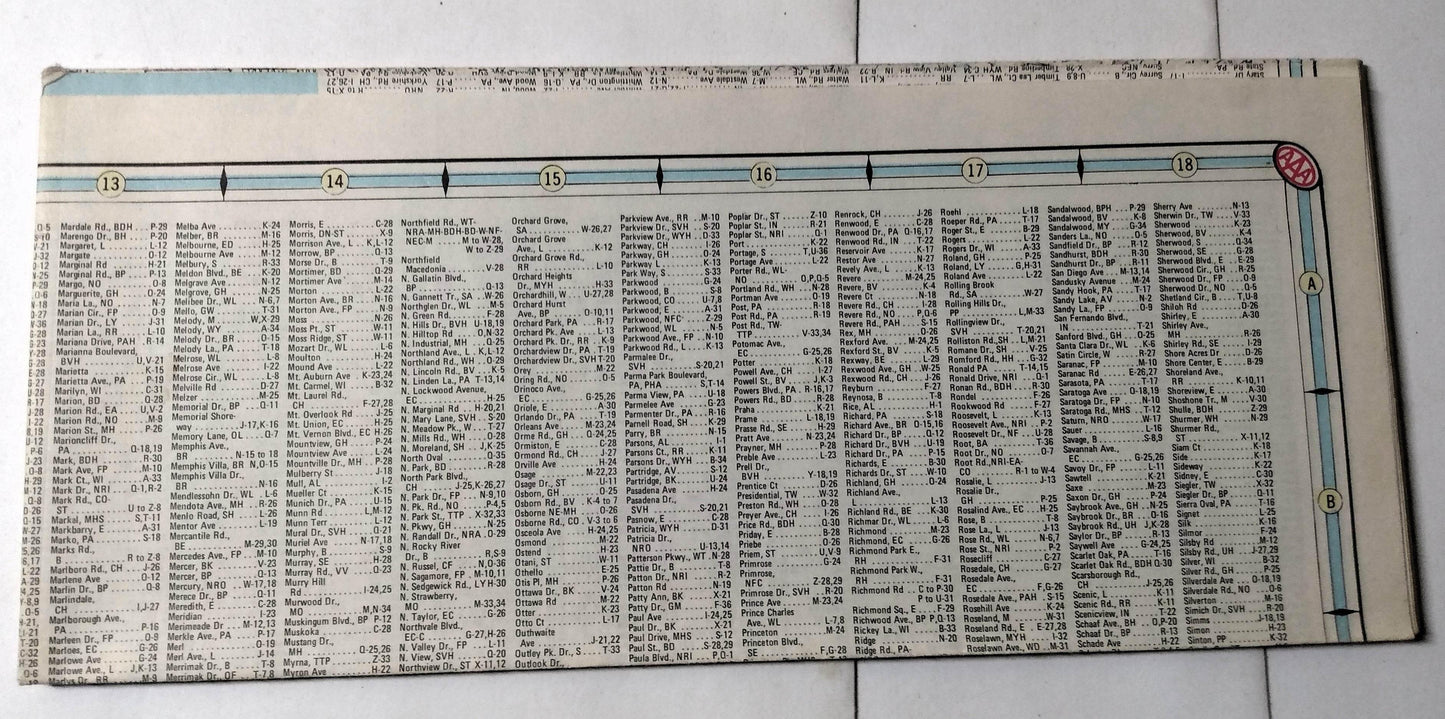 13
14
15
16
17
18
AAA
A
B
Mardale Rd., BDH P-29
Marengo Dr., BH P-20
Margaret, L L-12
Margate O-12
Marginal Rd H-21
Marginal Rd., BP P-13
Margo, NO O-8
Marguerite, GH O-24
Maria La., NO N-7
Marian Cir., FP O-9
Marian Dr., LY J-31
Marian La., RR L-10
Mariana Drive, PAH R-14
Marianna Boulevard,
BVH U,V-21
Marietta K-15
Marietta Ave., PA P-19
Marilyn, WI C-31
Marion, BD Q-28
Marion Rd., EA U,V-2
Marion Rd., NO M-9
Marion St., MH P-26
Marioncliff Dr.,
PA Q-18,19
Mark, BDH R-30
Mark Ave, FP M-10
Mark Ct., WI A-33
Mark Dr., NRI Q-1,R-2
Mark Rd., CO-
ST U to Z-8
Markal, MHS S,T-11
Markbarry, E A-31
Marko, PA S-18
Marks Rd.,
B R to Z-8
Marlboro Rd., CH J-26
Marlene Ave O-12
Marlin Dr., BP Q-8
Marlindale,
CH I,J-27
Marlborough Ave.,
PA P-16
Marleen Dr., FP O-9
Marloes, EC G-26
Marlowe Ave G-24
Marlowe Ave., L J,K-13
Melba Ave K-24
Melber, BR M-16
Melbourne, ED H-25
Melbourne Ave M-12
Melbury, S R-33
Meldon Blvd., BE K-20
Melgrave Ave N-12
Melgrove, GH N-25
Mellbee Dr., WL N-6,7
Mello, GW T-31
Melody, M W,X-29
Melody, WY A-34
Melody Dr., BR O-15
Melody La., PA T-18
Melrose, WL L-8
Melrose Ave I-22
Melrose Cir., WL L-8
Melville Rd D-27
Melzer M-25
Memorial Dr., BP Q-11
Memorial Shore-
way J-17,K-16
Memory Lane, OL Q-7
Memphis Ave.,
BR N-15 to 18
Memphis Villa, BR N,O-15
Memphis Villa Dr.,
BR N-16
Mendlessohn Dr., WL L-6
Mendota Ave., MH R-26
Menlo Rd., SH L-26
Mentor Ave L-19
Mercantile Rd.,
BE M-29,30
Mercedes Ave., FP M-10
Mercer, BK V-23
Mercer, BP Q-13
Mercury, NRO W-17,18
Merece Dr., BP Q-11
Meredith, E C-28
Meridian I-23
Merimeade Dr M-12,13
Merkle Ave., PA P-17
Merl O-19
Merl Ave., L J-14
Merrimak Dr., B T-8
Merrimak Dr., OF T-7,8
Morris, E C-28
Morris, DN-ST X-9
Morrison Ave., L K,L-12
Morrow, BP Q-13
Morse Dr., B T-9
Mortimer, BD Q-29
Mortimer Ave M-14
Morton L-22
Morton Ave., BR N-16
Morton Ave., FP N-9
Moss N-26
Moss Pt., ST W-11
Moss Ridge, ST W-11
Mozart Dr., WL L-6
Moulton H-24
Mound Ave L-22
Mt. Auburn Ave K-23,24
Mt. Carmel, WI B-32
Mt. Laurel Rd.,
CH F-27,28
Mt. Overlook Rd J-25
Mt. Union, EC H-25
Mt. Vernon Blvd., EC H-26
Mountview, GH P-24
Mountview Ave L-24
Mountville Dr., MH P-28
Mulberry St J-18
Mull, AL I-2
Mueller Ct K-15
Munich Dr., PA U-15
Munn Rd L,M-12
Munn Terr L-12
Mural Dr., SVH Q-21
Muriel Ave N-17,18
Murphy, B S-9
Murray, SE H-28
Murray Rd., VV O-23
Murry Hill
Rd I-24,25
Murwood Dr.,
MO M,N-34
Muskingum Blvd., BP P-12
Muskoka C-28
Mustang Dr.,
MH Q-25,26
Myrna, TTP Z-33
Myron Ave H-22
Northfield Rd., WT-
NRA-MH-BDH-BD-W-NF-
NEC-M M to W-28,
W to Z-29
Northfield
Macedonia V-28
N. Gallatin Blvd.,
BP O-13
N. Gannett Tr., SA W-26
Northglen Dr., WL M-5
N. Green Rd. F-28
N. Hills Dr., BVH U-18,19
N. Hilltop Rd O,N-32
N. Industrial, MH Q-25
Northland Ave., L K,L-12
Northland Rd., WH O-29
N. Lincoln Rd., BV K-5
N. Linden La., PA T-13,14
N. Lockwood Avenue,
EC H-25
N. Marginal Rd H-20,21
N. Mary Lane, SVH S-20
N. Meadow Pk., W T-27
N. Mills Rd., WH O-28
N. Moreland, SH J,K-25
North Oval Q-35
N. Park, BD R-28
North Park Blvd.,
CH J-25,K-26,27
N. Park Dr., FP N-9,10
N. Pk. Rd., NO P-4,5
N. Park St., TTP X-32,33
N. Pkwy, GH N-25
N. Randall Dr., NRA O-29
N. Rocky River
Dr., B R,S-9
N. Russel, CF N,O-36
N. Sagamore, FP M-10,11
N. Sedgewick Rd., LYH-30
N. Strawberry,
MO M-33,34
N. Taylor, EC G-26
Northvale Blvd.,
EC-C G-27,H-26
N. Valley Dr., FP L-11
N. View, SVH O-20
Northview Dr., ST X-11,12
Orchard Grove,
SA W-26,27
Orchard Grove
Ave., L K-12
Orchard Grove Rd.,
RR L-10
Orchard Heights
Dr., MYH H-33
Orchardhill, W U-27,28
Orchard Hurst
Ave., BP O-10,11
Orchard Park, PA R-17
Orchard Pk. Ave L-13
Orchard Pk. Dr., RR K-9
Orchardview Dr., PA T-19
Orchardview Dr., SVH T-20
Orey M-22
Oring Rd., NO O-5
Orinoco Ave.,
EC G-25,26
Oriole, E A-30
Orlando Dr., PA T-19
Orleans Ave M-23,24
Orme Rd., GH O-24,25
Ormiston, E C-28
Ormond Rd., CH J-27
Orville Ave H-24
Osage M-22,23
Osage Dr., ST U-11
Osborn, GH O-25
Osborn Rd., BV K-4 to 7
Osborne NE-MH O-26
Osborne Rd., CO V-3 to 6
Osceola Ave H-24,25
Osmond M-22
Ostend H-23
Otani, ST W-11
Othello E-25
Otis Pl, MH P-26
Ottawa Dr., BK V-24
Ottawa Rd M-22
Otter K-23
Otto Ct L-17
Outhwaite
Ave J-21,22
Outley Pk. Dr., S T-33
Outlook Dr.,
Parkview Ave., RR M-10
Parkview Dr., SVH S-20
Parkview Dr., WYH D-33
Parkway, CH I-26
Parkway, GH O-24
Parkway, L K-13
Park Way, S S-33
Parkwood G-24
Parkwood, B S-8
Parkwood, CO U-7,8
Parkwood, E A-31
Parkwood, NFC Z-29
Parkwood, WL N-5
Parkwood Ave., FP N-10
Parkwood Rd., L K-13
Parmalee Dr.,
SVH S-20,21
Parma Park Boulevard,
PA, PHA S,T-14
Parma View, PA U-18
Parmelee Ave G-23
Parmenter Dr., PA R-16
Parnell Road, SH K-29
Parry, BR N-15
Parsons, AL I-1
Parsons Ct., RR K-11
Parsons Dr., WYH B-34
Partridge, AV S-12
Partridge, BK U-24
Pasadena Ave H-24
Pasadena Dr.,
SVH S-20,21
Pasnow, E C-28
Patricia, WYH D-31
Patricia Dr.,
NRO U-13,14
Patterson Pkwy., WT N-28
Pattie Dr., B T-8
Patton Dr., NRI R-2
Patton Rd N-19
Patty Ann, BK X-21
Patty Dr., GM F-36
Paul Ave I-24,25
Paul Dr., AV T-12
Paul Drive, MHS S-12
Paul St., BD S-28,29
Paula Blvd., NRI P,O-1
Poplar Dr., ST Z-10
Poplar St., IN R-21
Poplar St., NRI Q-1
Port K-22
Portage, S T,U-36
Portage Ave L-22
Porter Rd., WL-
NO O,P,Q-5
Portland Rd., WH N-28
Portman Ave O-19
Post, PA R-18
Post Rd., PA R-19
Post Rd., TW-
TTP V-33,34
Potomac Ave.,
EC G-25,26
Potter K-18
Powell Ave., CH I-27
Powell St., BV J,K-3
Powers Blvd., PA R-16,17
Powers Rd., BD R-28
Praha K-21
Prame L-18,19
Prase Rd., SE H-29
Pratt Ave N-23,24
Prayner, MH P-28
Preble Ave L-23
Prell Dr.,
BVH Y-18,19
Prentice Ct D-26
Presidential, TW W-32
Preston Rd., WH O-28
Preyer Ave., CH I-26
Price Rd., BDH Q-30
Priday, E B-28
Priebe O-26
Priem, ST U,V-9
Primrose G-24
Primrose,
NFC Z-28,29
Primrose Dr., SVH R-20
Prince Ave M-23,24
Prince Charles
Ave., WL L-7,8
Princeton M-24
Princeton Blvd.,
SE F,G-28
Renrock, CH J-26
Renwood, E C-28
Renwood Dr., PA O-16,17
Renwood Rd., IN T-22
Reservoir Ave K-17
Restor Ave N-27
Revely Ave., L K-13
Revere M-24,25
Revere, BV K-4
Revere Ct N-18
Revere Rd., CH I-28
Revere Rd., NO P,Q-6
Revere Rd., PAH S-15
Rex, MH O-26
Rexford Ave M-24,25
Rexford St., BV K-5
Rexway, BE L-29
Rexwood Ave., GH W-25
Rexwood Rd., CH J-26
Reyburn F-27
Reynosa, B T-8
Rice, AL H-1
Richard, PA S-18
Richard Ave., BR O-15,16
Richard Dr., BP Q-12
Richard Dr., BVH U-19
Richard Dr., PA T-15
Richards, E B-30
Richards Dr., ST W-10
Richland, GH O-24
Richland Ave.,
L L-13
Richland Rd., BE K-30
Richmar Dr., WL L-6
Richmond, EC H-25
Richmond Park E.,
RH F-31
Richmond Park W.,
RH F-31
Richmond Rd C to P-30
P to U-31
Richmond Sq., E F-29
Richwood Rd., BP P,O-13
Rickey La., WI B-33
Ridge N-20
Ridge Rd., PA-
Roehl L-18
Roeper Rd., PA T-17
Roger St., E B-29
Rogers L-22
Rogers Dr., WI A-33
Roland, GH P-25
Roland, LY G,H-31
Roland Ave L-22
Rolling Brook
Rd., SA W-27
Rolling Hills Dr.,
PP L,M-33
Rollingview Dr.,
SVH T-20,21
Rolliston Rd., SH L,M-21
Romane Dr., SH V-25
Romford Rd., HH G-32
Ronald PA T-14,15
Ronald Drive, NRI Q-1
Ronan Rd., BDH R-30
Rondel F-26
Rookwood Rd F-27
Roosevelt, L K-13
Roosevelt Ave., NRI P-2
Roosevelt Dr., NF U-28
Root, BA T-36
Root Dr., NO O-7
Root Rd., NRI-EA-
CO R-1 to W-4
Rosalie, L J-13
Rosalie Dr.,
GH P-25
Rosalind Ave., EC H-25
Rose, B T-8
Rose La., L J-13
Rose Rd., WL N-6,7
Rose St., NRI P-2
Rosecliff C-27
Rosedale, CH G-27
Rosedale Ave.,
EC F,G-26
Rosedale Ave., PAH S-15
Rosehill Ave K-24
Roseland, M W-31
Roseland Rd., E E-27,28
Roselawn, MYH I-32
Roselawn Ave., WD M-31
Sandalwood, BPH P-29
Sandalwood, BV K-8
Sandalwood, MY G-34
Sanders La., NO O-5
Sandfield Dr., BP R-12
Sandhurst, BDH R-30
Sandhurst Dr., BP R-11
San Diego Ave M-13,14
Sandusky Ave M-24
Sandy Hook, PA T-17
Sandy Lake, AV N-2
Sandy La., FP O-9
San Fernando Blvd.,
IN T-21
Sanford Blvd., GH O-25
Santa Clara Dr., WL K-6
Satin Circle, W R-27
Saranac, FP M-10
Saranac Rd E-26,27
Sarasota, PA T-17
Saratoga Ave O-18,19
Saratoga Dr., FP N-10
Saratoga Rd., MHS T-12
Saturn, NRO W-17
Sauer L-16
Savage, B S-8,9
Savannah Ave.,
EC G-25,26
Savoy Dr., FP L-11
Sawtell K-21
Saxe M-23
Saxon Dr., GH P-24
Saybrook Ave., GH N-25
Saybrook Dr., BR O-16
Saybrook Rd., UH J,K-28
Saylor Dr., BP Q-12
Saywell Ave G-24,25
Scarlet Oak, PA T-16
Scarlet Oak Rd., BDH Q-30
Scarsborough Rd.,
CH J-25,26
Scenic, L K-11
Scenic Rd., RR K-11
Scenicview, IN T-21
Schaaf Ave., BH O,P-20
Schaaf Dr., BP R-13
Schade Ave H-22
Sherry Ave N-13
Sherwin Dr., TW V-33
Sherwood K-23
Sherwood, BV K-4
Sherwood, S Q-34
Sherwood, SE G-28
Sherwood Blvd., E E-29
Sherwood Cir., GH R-25
Sherwood Dr., FP O-9
Sherwood Dr., NO Q-5
Shetland Cir., B T,U-8
Shiloh Rd O-26
Shirley, E A-30
Shirley Ave.,
MH R-26
Shirley Rd., SE I-29
Shore Acres Dr D-26
Shore Center, E B-29
Shoreland Ave.,
RR K-10,11
Shoreview, E A-30
Shoshone Tr., M V-30
Shulle, BDH Z-29
Shurmer, MH N-29
Shurmer Rd.,
ST X-11,12
Siam Ct K-18
Side K-17
Sideway K-22
Sidney, E C-30
Siegler, TW X-32
Siegler Dr., BP Q-11
Sierra Oval, PA T-16
Signet L-25
Silk K-16
Silmor F-24
Silsby Rd M-12
Silsby Rd., UH J-27,29
Silver, WI B-32
Silver Rd., GH P-25
Silverdale Ave O-18,19
Silverdale Rd., NO O-6
Silverton M-16
Simich Dr., SVH R-20
Simms J-18,19
Simon H-23
Sinton, PP K-32